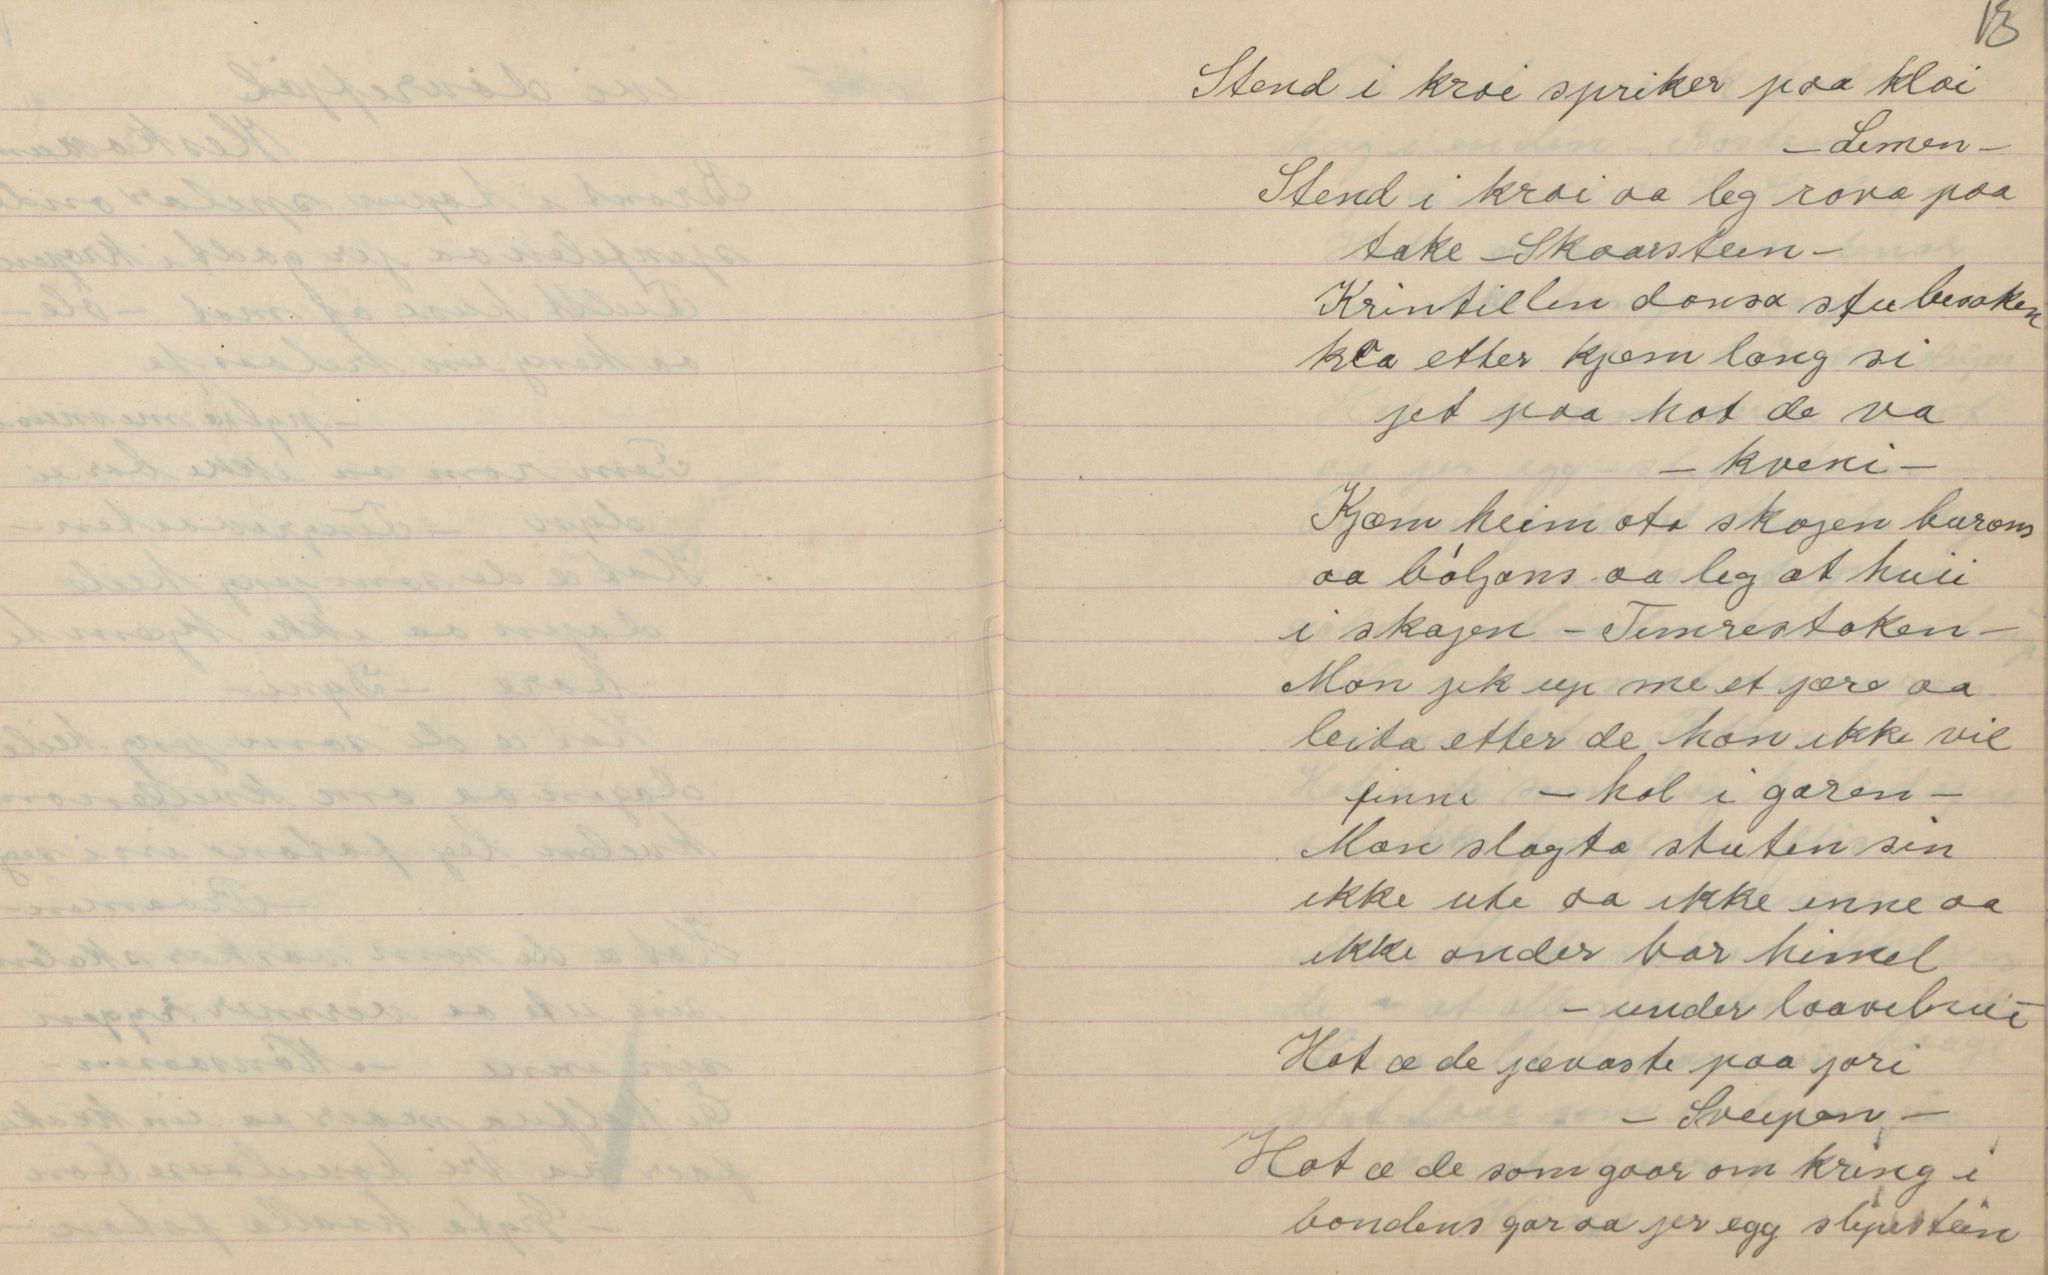 13
Stend i kroi spriker paa kloi
- Limen -
Stend i kroi aa leg rova paa
take - Skaarstein -
Krintillen donsa stubesoken
kra etter kjem long si
jet paa hot de va
- kveni -
Kjem heim ota skogen burans
aa bóljans aa leg at huii
i skogen - Timrestoken -
Mon jek up me et jære aa
leita etter de hon ikke vil
finni - hol i garen -
Mon slogta stuten sin
ikke ute aa ikke inne aa
ikke onder bar himel
- under laavebrui -
Hot æ de jævaste paa jori
- Sveipen -
Hot æ de som gaar om kring i
bondens gar aa jer egg slipestein